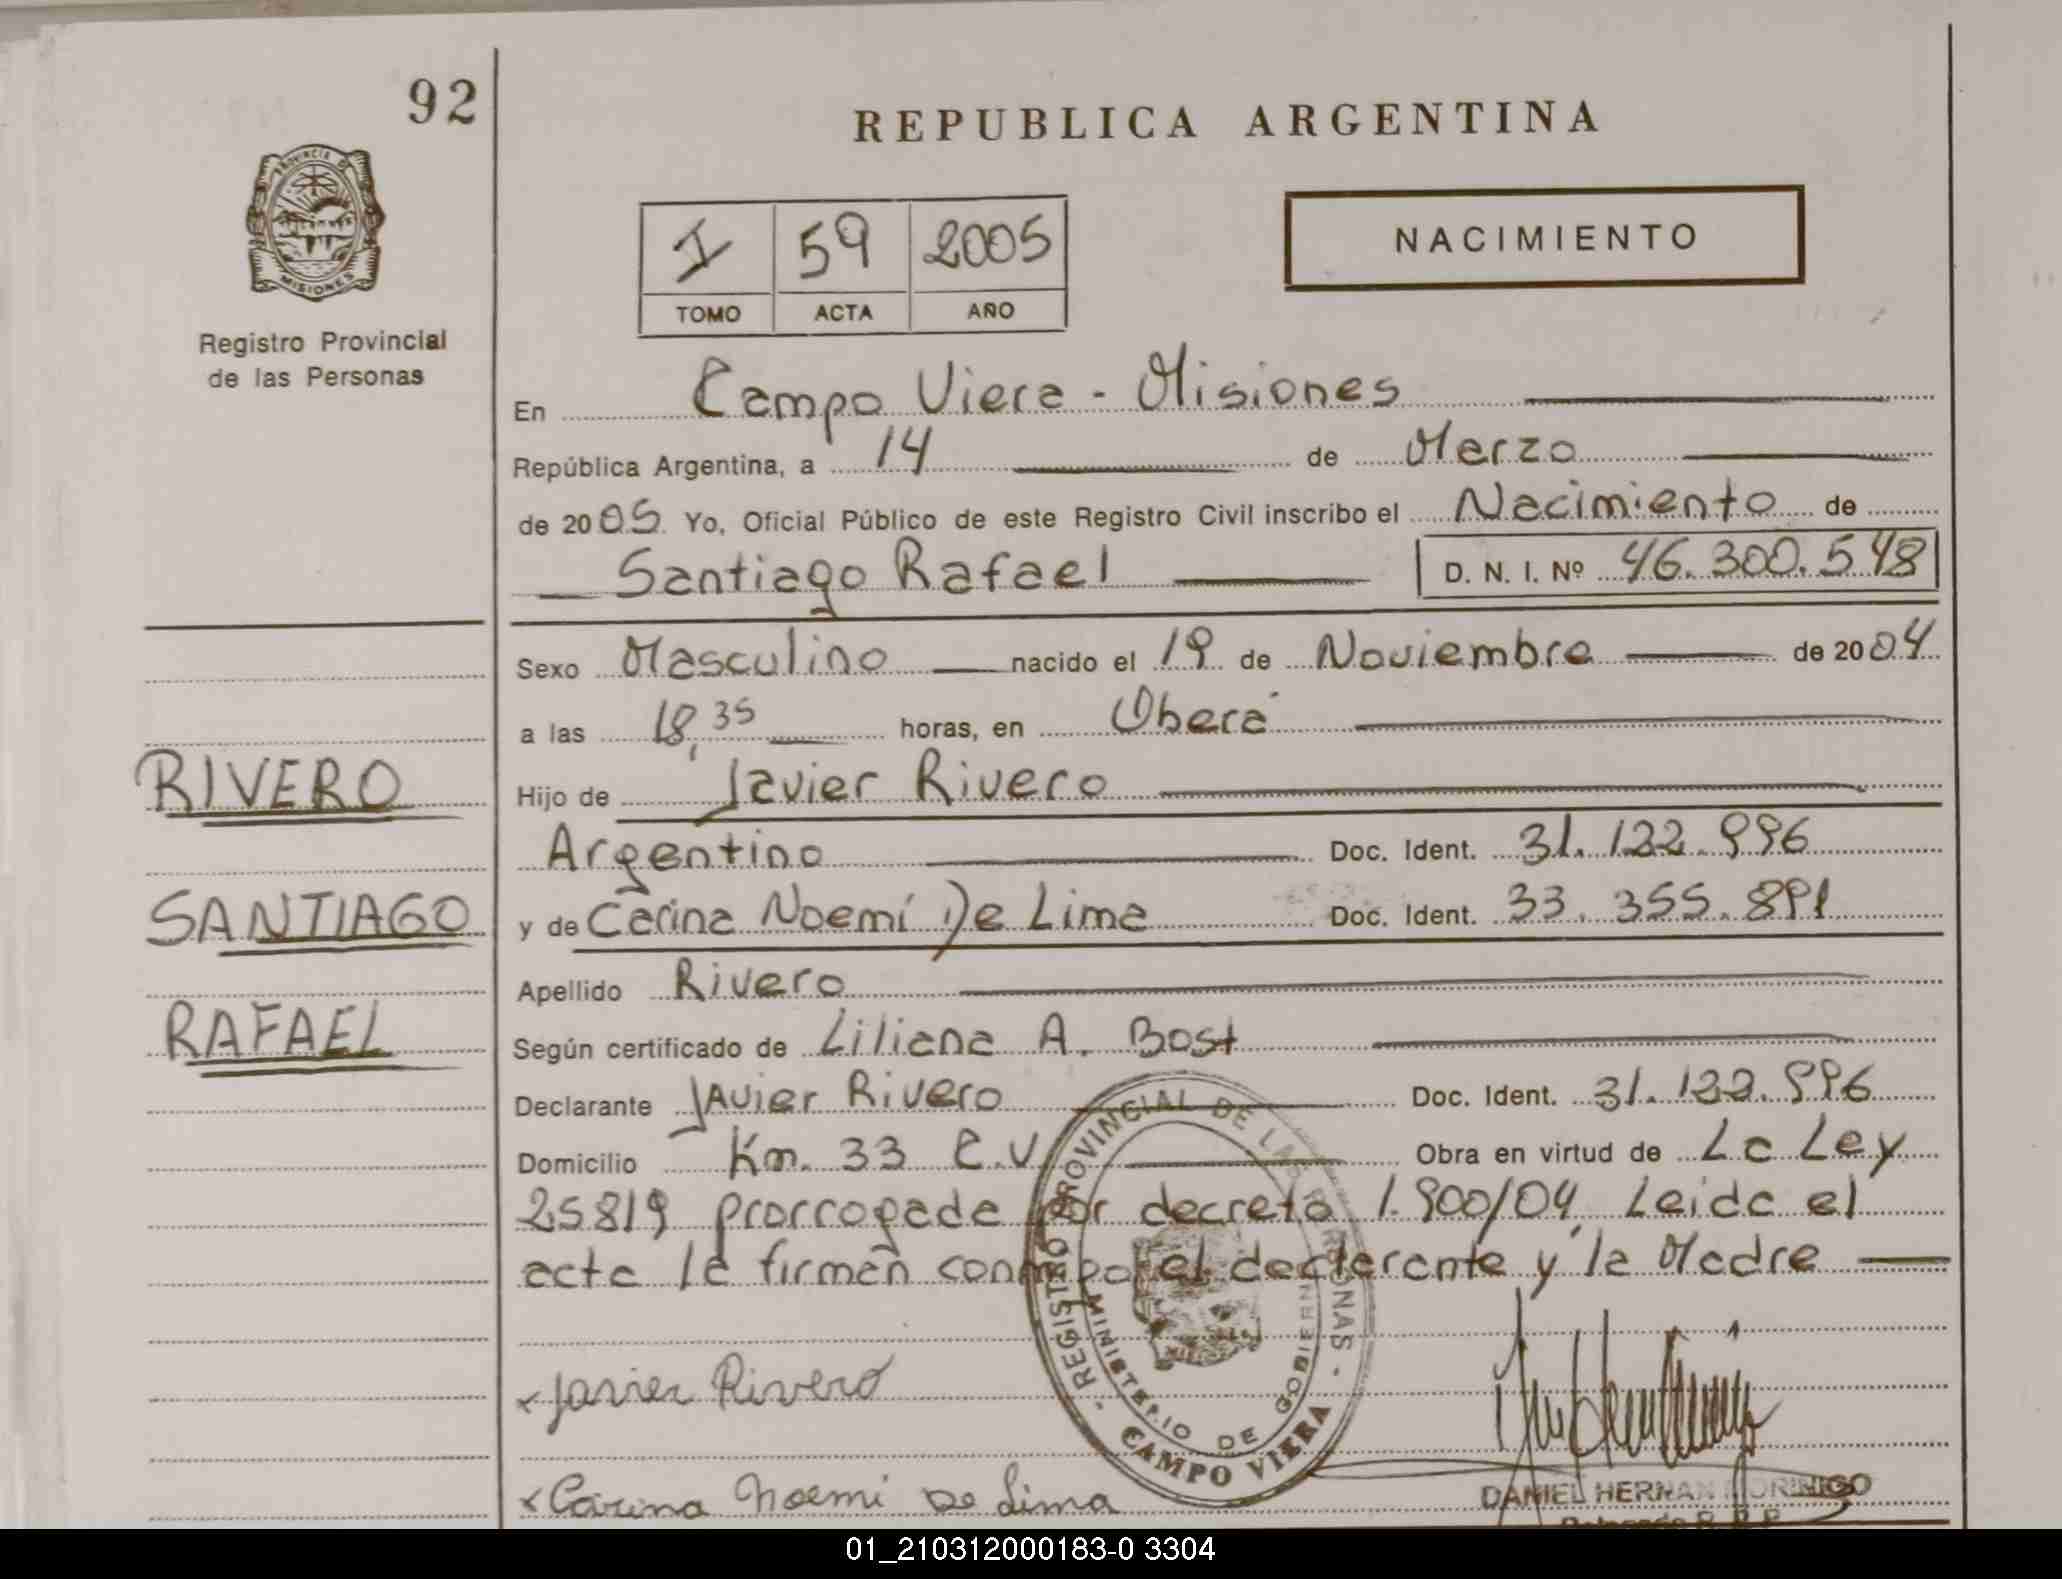 92
REPUBLICA ARGENTINA
PROVINCIA DE MISIONES
Registro Provincial
de las Personas
I 59 2005
TOMO ACTA AÑO
NACIMIENTO
En Campo Viera - Misiones
República Argentina, a 14 de Marzo
de 2005 Yo, Oficial Público de este Registro Civil inscribo el Nacimiento de
Santiago Rafael D. N. I. Nº 46.300.548
Sexo Masculino nacido el 19 de Noviembre de 2004
a las 18,35 horas, en Oberá
RIVERO
Hijo de Javier Rivero
Argentino Doc. Ident. 31.122.996
SANTIAGO
y de Carina Noemí De Lima Doc. Ident. 33.355.891
Apellido Rivero
RAFAEL
Según certificado de Liliana A. Bost
Declarante Javier Rivero Doc. Ident. 31.122.996
Domicilio Km. 33 C.V. Obra en virtud de La Ley
25819 prorrogada por decreto 1.900/04, Leida el
acta la firman conmigo el declarante y la Madre
REGISTRO PROVINCIAL DE LAS PERSONAS -
MINISTERIO DE GOBIERNO
CAMPO VIERA
x Javier Rivero
x Carina Noemi De Lima
DANIEL HERNAN MORINIGO
01_210312000183-0 3304